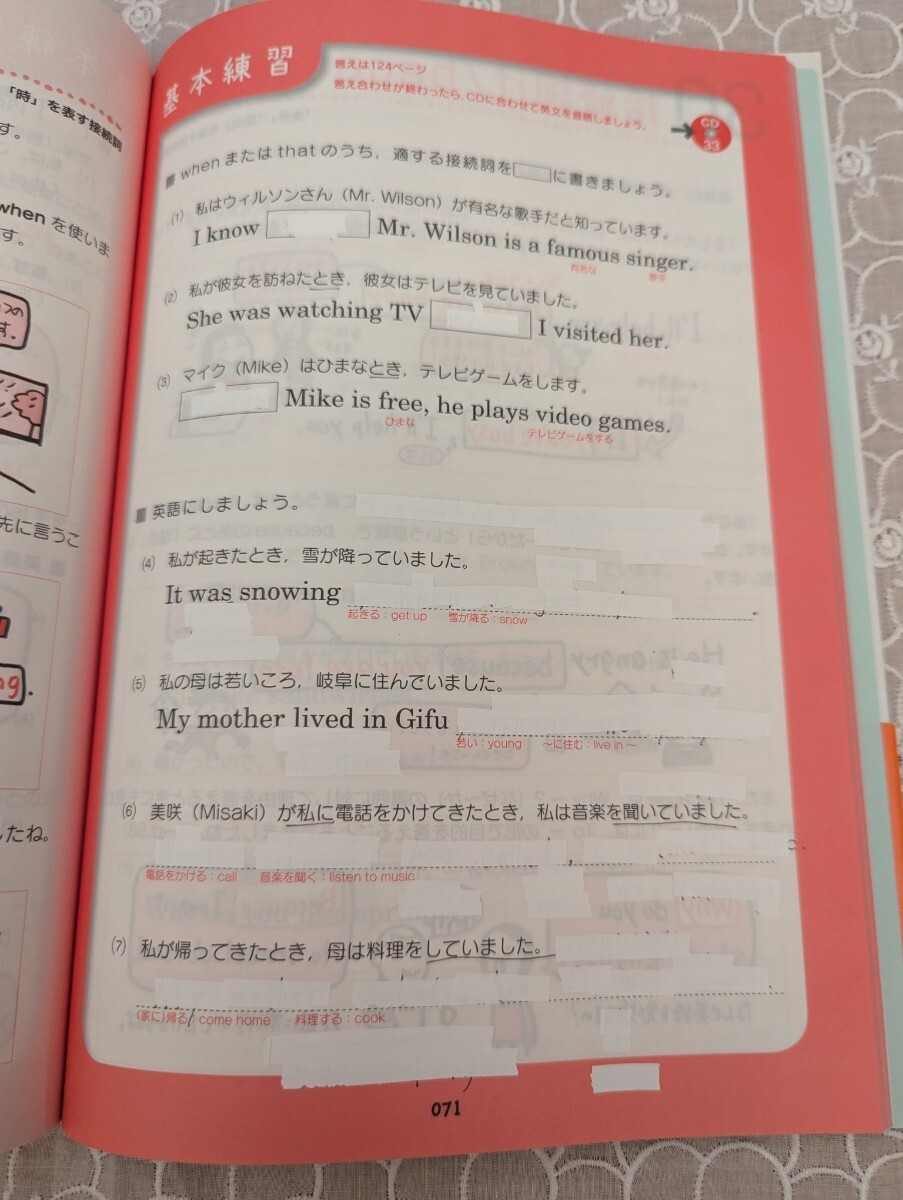 「時」を表す接続詞
す。
when を使いま
す。
つの
す.
先に言うこ
ng.
たね。
基本練習
答えは124ページ
答え合わせが終わったら, CDに合わせて英文を音読しましょう。
CD
33
■ when または that のうち，適する接続詞を に書きましょう。
(1) 私はウィルソンさん（Mr. Wilson）が有名な歌手だと知っています。
I know Mr. Wilson is a famous singer.
有名な 歌手
(2) 私が彼女を訪ねたとき，彼女はテレビを見ていました。
She was watching TV I visited her.
(3) マイク（Mike）はひまなとき，テレビゲームをします。
Mike is free, he plays video games.
ひまな テレビゲームをする
■ 英語にしましょう。
(4) 私が起きたとき，雪が降っていました。
It was snowing
起きる：get up 雪が降る：snow
(5) 私の母は若いころ，岐阜に住んでいました。
My mother lived in Gifu
若い：young ～に住む：live in ～
(6) 美咲（Misaki）が私に電話をかけてきたとき，私は音楽を聞いていました。
電話をかける：call 音楽を聞く：listen to music
(7) 私が帰ってきたとき，母は料理をしていました。
(家に)帰る：come home 料理する：cook
071